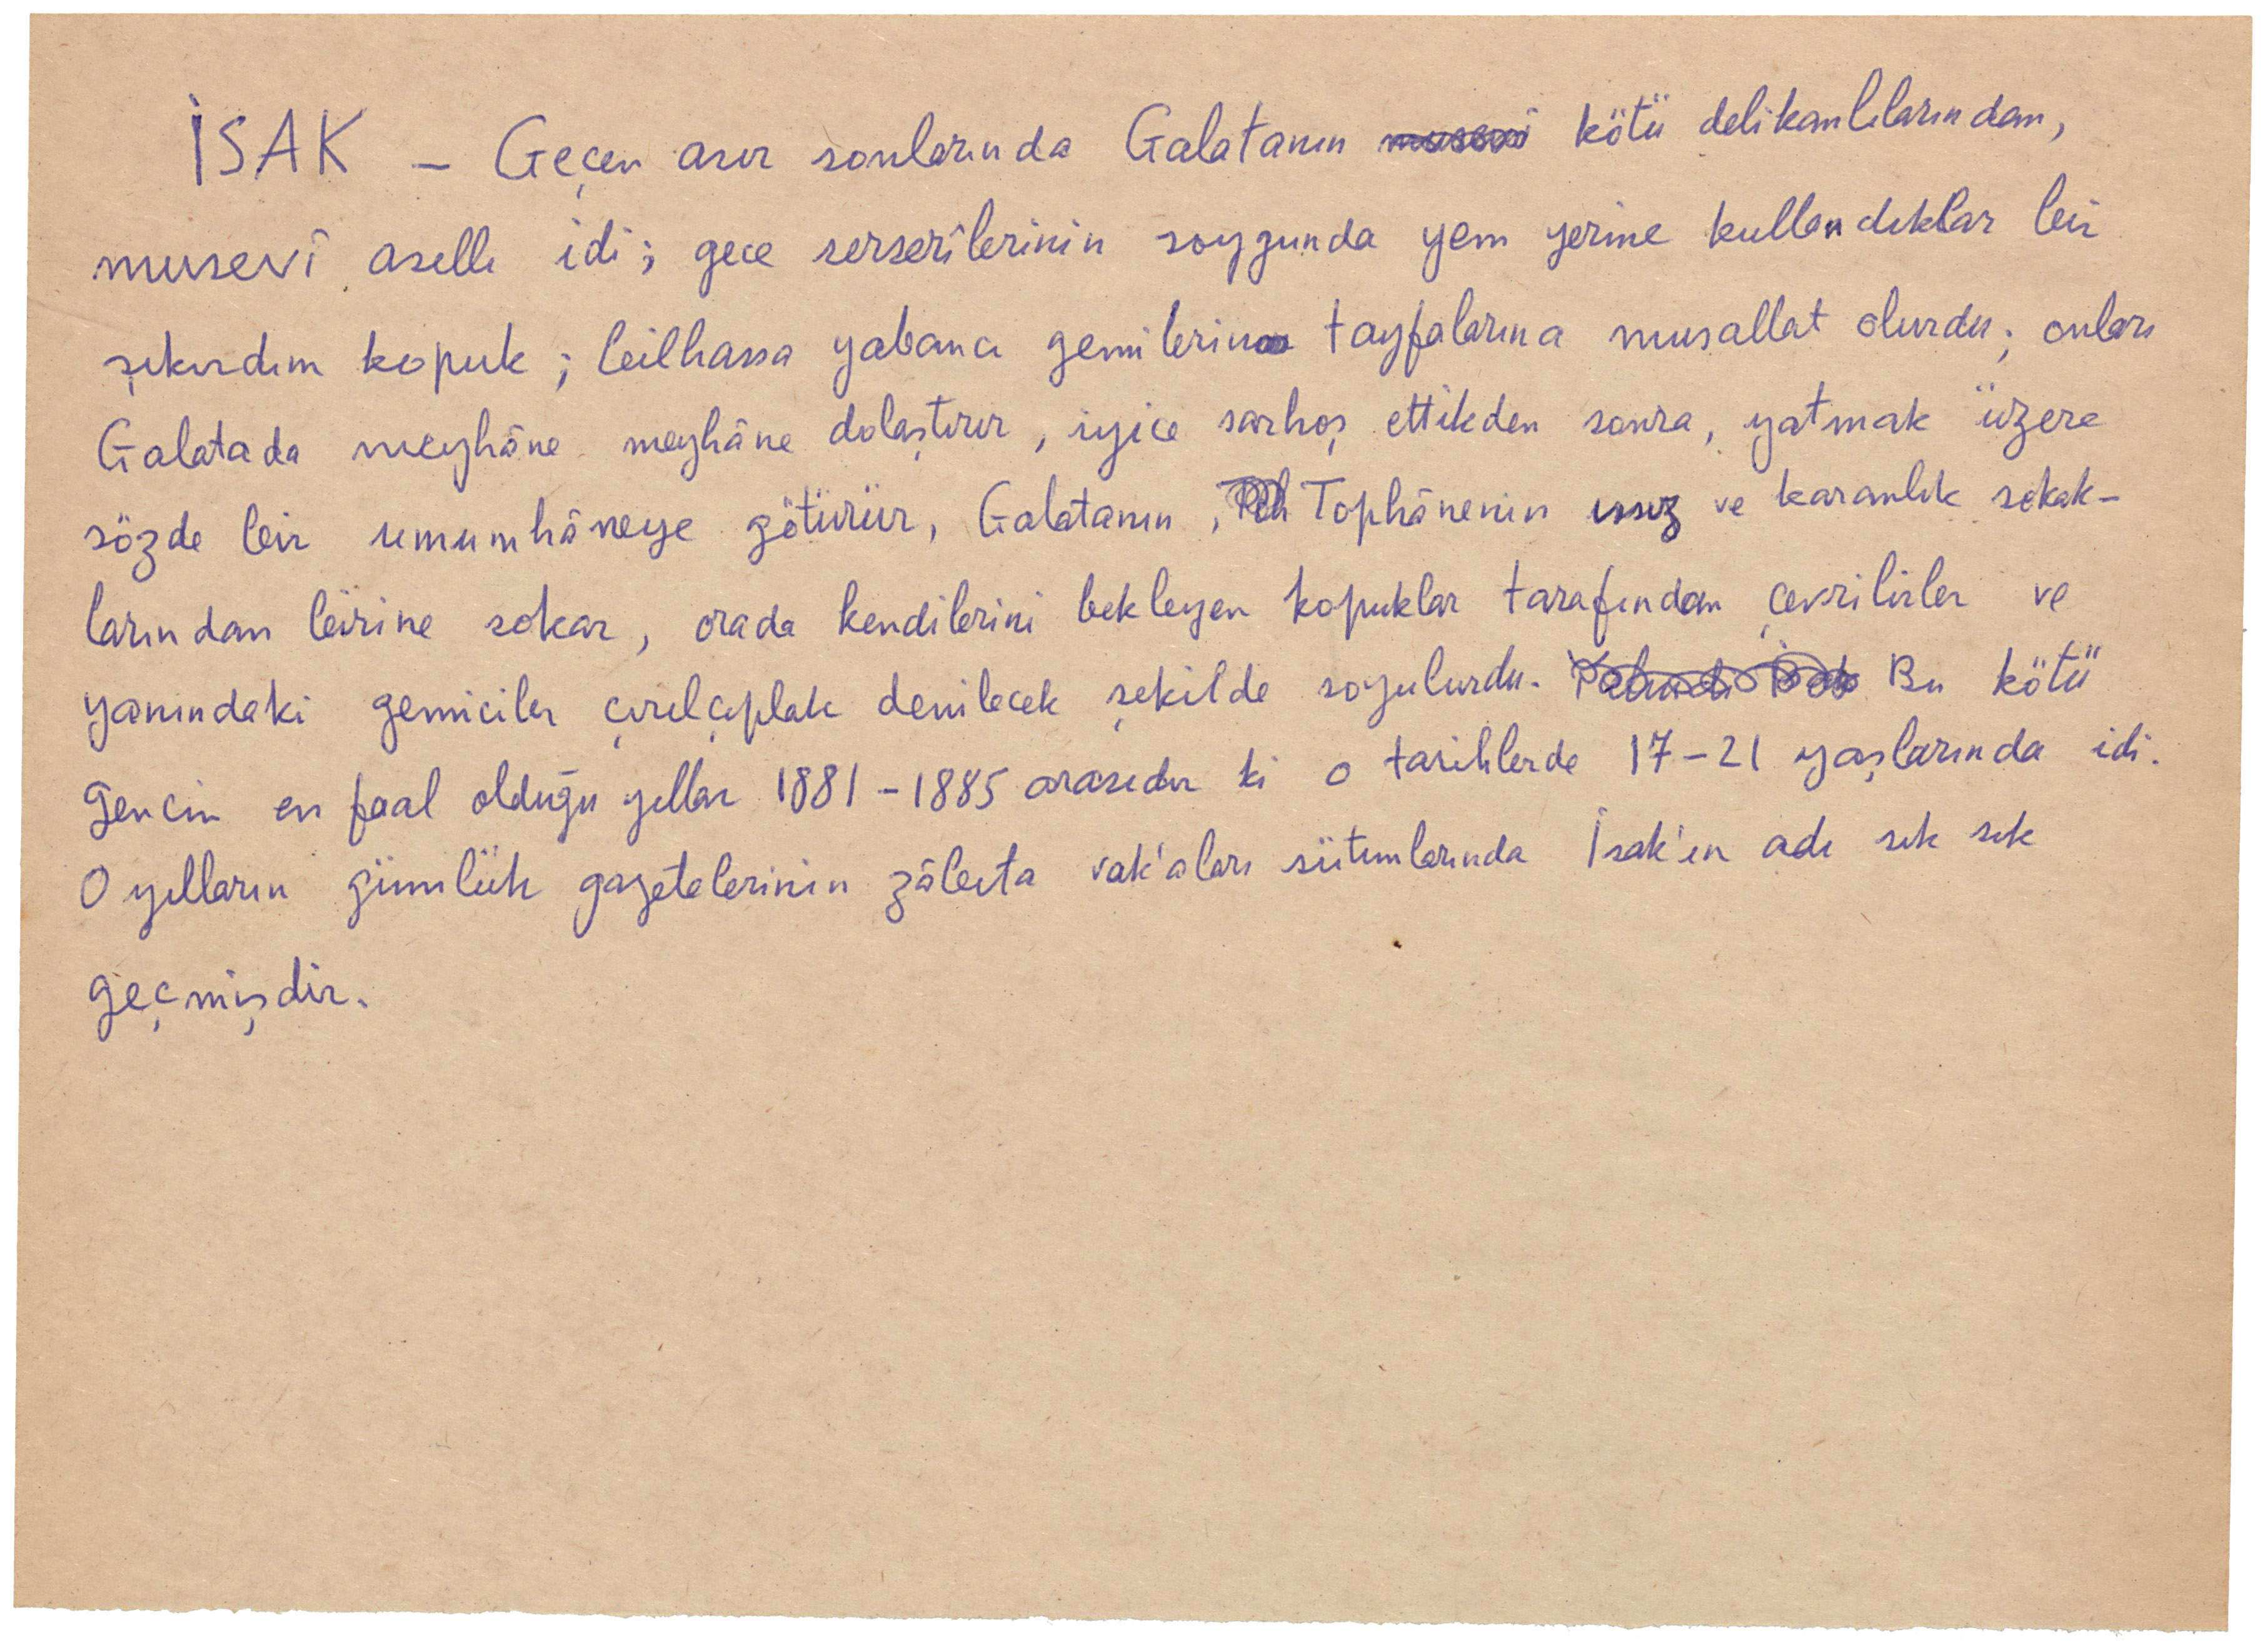 İSAK – Geçen asır sonlarında Galatanın kötü delikanlılarından,
musevî asıllı idi; gece serserîlerinin soygunda yem yerine kullandıkları bir
şıkırdım kopuk; bilhassa yabancı gemilerin tayfalarına musallat olurdu; onları
Galatada meyhâne meyhâne dolaştırır, iyice sarhoş ettikden sonra, yatmak üzere
sözde bir umumhâneye götürür, Galatanın, Tophânenin ıssız ve karanlık sokak-
larından birine sokar, orada kendilerini bekleyen kopuklar tarafından çevrilirler ve
yanındaki gemiciler çırılçıplak denilecek şekilde soyulurdu. Bu kötü
gencin en faal olduğu yıllar 1881-1885 arasıdır ki o tarihlerde 17-21 yaşlarında idi.
O yılların günlük gazetelerinin zâbıta vak'aları sütunlarında İsak'ın adı sık sık
geçmişdir.